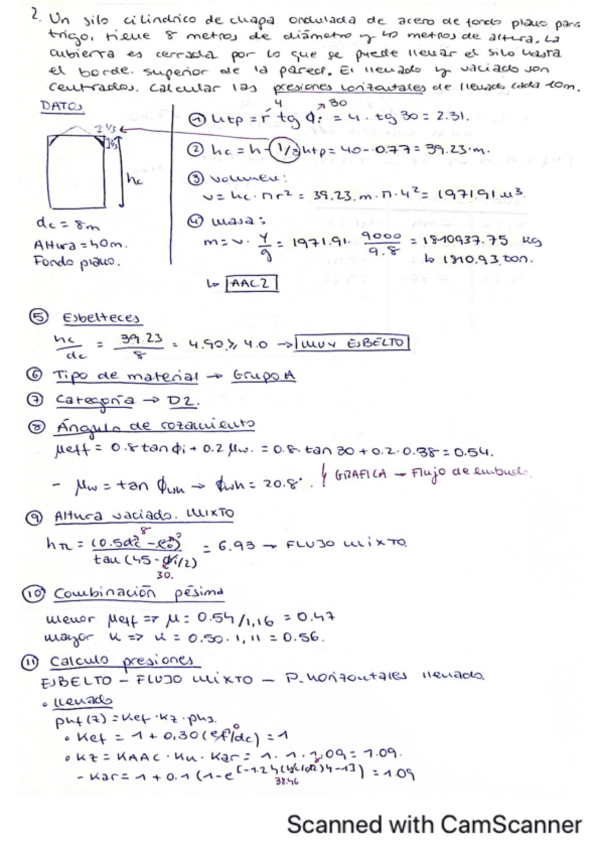 2. Un silo cilíndrico de chapa ondulada de acero de fondo plano para
trigo, tiene 8 metros de diámetro y 40 metros de altura. La
cubierta es cerrada por lo que se puede llenar el silo hasta
el borde superior de la pared. El llenado y vaciado son
centrados. Calcular las presiones horizontales de llenado cada 10m.
DATOS
hc
dc = 8m
Altura = 40m.
Fondo plano.
4 30
① htp = r tg ϕi = 4 . tg 30 = 2.31.
② hc = h - 1/3 htp = 40 - 0.77 = 39.23 m.
③ Volumen:
V = hc · π r² = 39.23 m · π · 4² = 1971.91 m³
④ masa:
m = v · γ/g = 1971.91 · 9000/9.8 = 1810937.75 kg
↳ 1810.93 ton.
↳ AAC2
⑤ Esbelteces
hc/dc = 39.23/8 = 4.90 ≥ 4.0 → MUY ESBELTO
⑥ Tipo de material → Grupo A
⑦ Categoría → D2.
⑧ Ángulo de rozamiento
μeff = 0.8 tan ϕi + 0.2 μw. = 0.8 · tan 30 + 0.2 · 0.38 = 0.54.
- μw = tan ϕwh → ϕwh = 20.8°. GRAFICA → Flujo de embudo
⑨ Altura vaciado. MIXTO
8
= 6.93 → FLUJO MIXTO
30.
⑩ Combinación pésima
menor μeff => μ = 0.54/1,16 = 0.47
mayor K => K = 0.50 · 1,11 = 0.56.
⑪ Calculo presiones
ESBELTO - FLUJO MIXTO - P. horizontales llenado.
• llenado
phf(z) = Kef · Kz · phz
• Kef = 1 + 0.30 (ef/dc) = 1
• Kz = KAAC · Ku · Kar = 1 · 1 · 1,09 = 1.09.
Scanned with CamScanner